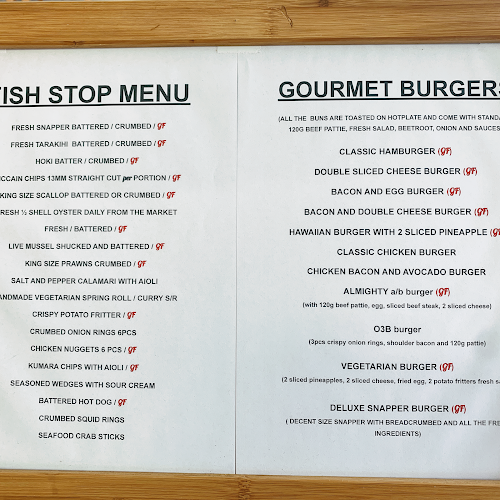 FISH STOP MENU
FRESH SNAPPER BATTERED / CRUMBED / GF
FRESH TARAKIHI BATTERED / CRUMBED / GF
HOKI BATTER / CRUMBED / GF
CCAIN CHIPS 13MM STRAIGHT CUT per PORTION / GF
KING SIZE SCALLOP BATTERED OR CRUMBED / GF
FRESH ½ SHELL OYSTER DAILY FROM THE MARKET
FRESH / BATTERED / GF
LIVE MUSSEL SHUCKED AND BATTERED / GF
KING SIZE PRAWNS CRUMBED / GF
SALT AND PEPPER CALAMARI WITH AIOLI
ANDMADE VEGETARIAN SPRING ROLL / CURRY S/R
CRISPY POTATO FRITTER / GF
CRUMBED ONION RINGS 6PCS
CHICKEN NUGGETS 6 PCS / GF
KUMARA CHIPS WITH AIOLI / GF
SEASONED WEDGES WITH SOUR CREAM
BATTERED HOT DOG / GF
CRUMBED SQUID RINGS
SEAFOOD CRAB STICKS
GOURMET BURGERS
(ALL THE BUNS ARE TOASTED ON HOTPLATE AND COME WITH STANDA
120G BEEF PATTIE, FRESH SALAD, BEETROOT, ONION AND SAUCES
CLASSIC HAMBURGER (GF)
DOUBLE SLICED CHEESE BURGER (GF)
BACON AND EGG BURGER (GF)
BACON AND DOUBLE CHEESE BURGER (GF)
HAWAIIAN BURGER WITH 2 SLICED PINEAPPLE (GF
CLASSIC CHICKEN BURGER
CHICKEN BACON AND AVOCADO BURGER
ALMIGHTY a/b burger (GF)
(with 120g beef pattie, egg, sliced beef steak, 2 sliced cheese)
O3B burger
(3pcs crispy onion rings, shoulder bacon and 120g pattie)
VEGETARIAN BURGER (GF)
(2 sliced pineapples, 2 sliced cheese, fried egg, 2 potato fritters fresh sa
DELUXE SNAPPER BURGER (GF)
( DECENT SIZE SNAPPER WITH BREADCRUMBED AND ALL THE FRE
INGREDIENTS)